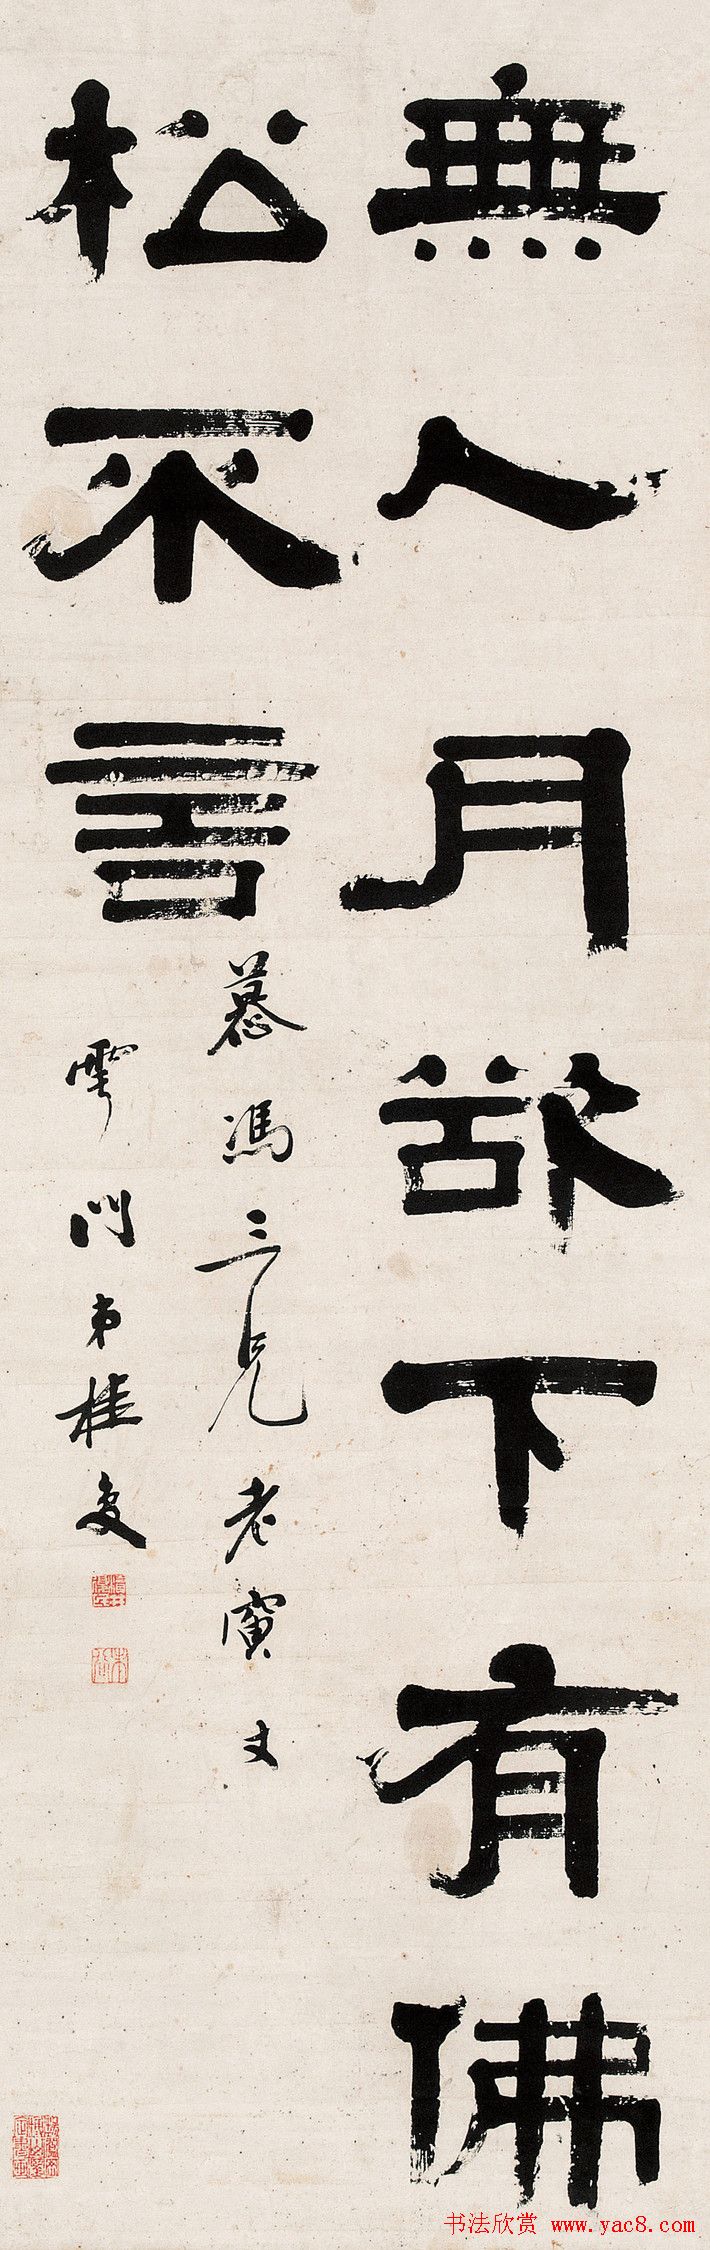 無人月欲下有佛
松不言
慕馮三兄老寅丈
雩門弟桂馥
书法欣赏 www.yac8.com